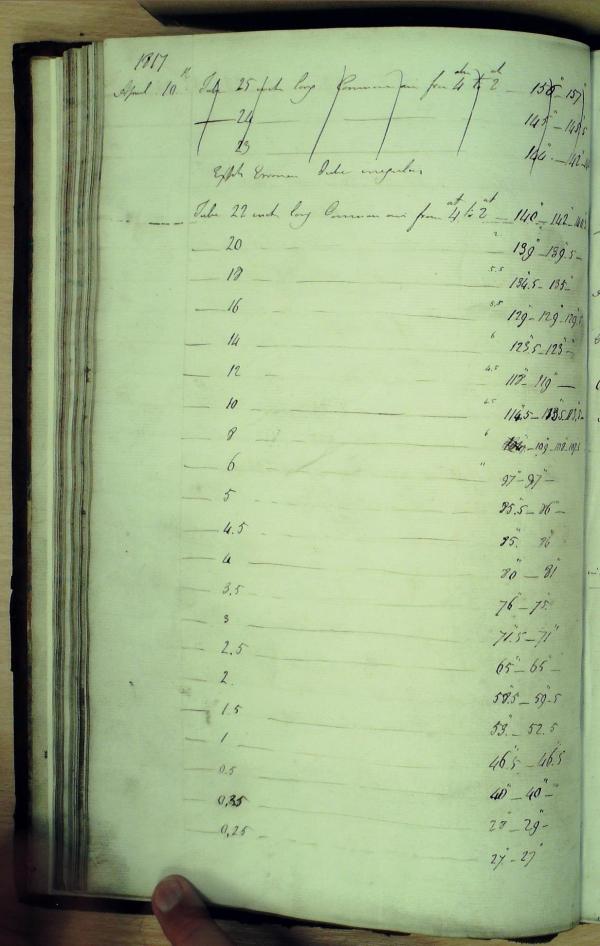 1817
April 10th Tube 25 inch long Common air from 4 at to 2 at — 158" - 157"
— 24 — 145" -
— 23 — 144" - 142"
Tube irregular
Tube 22 inch long Common air from 4 at to 2 at — 140" - 142" -
— 20 — 139" - 139.5 -
— 18 — 134.5 - 135"
— 16 — 129" - 129" - 129.5
— 14 — 123.5 - 123" -
— 12 — 118" - 119" —
— 10 — 114.5 -
— 8 — - 109 -
— 6 — 97" - 97" -
— 5 — 85.5 - 86" -
— 4.5 — 85" 86"
— 4 — 80" - 81"
— 3.5 — 76" - 75
— 3 — 71.5 - 71"
— 2.5 — 65" - 65" -
— 2 — 58.5 - 59.5
— 1.5 — 53" - 52.5
— 1 — 46.5 - 46.5
— 0.5 — 40" - 40" -
— 0,35 — 28" - 29" -
— 0,25 — 27" - 27"